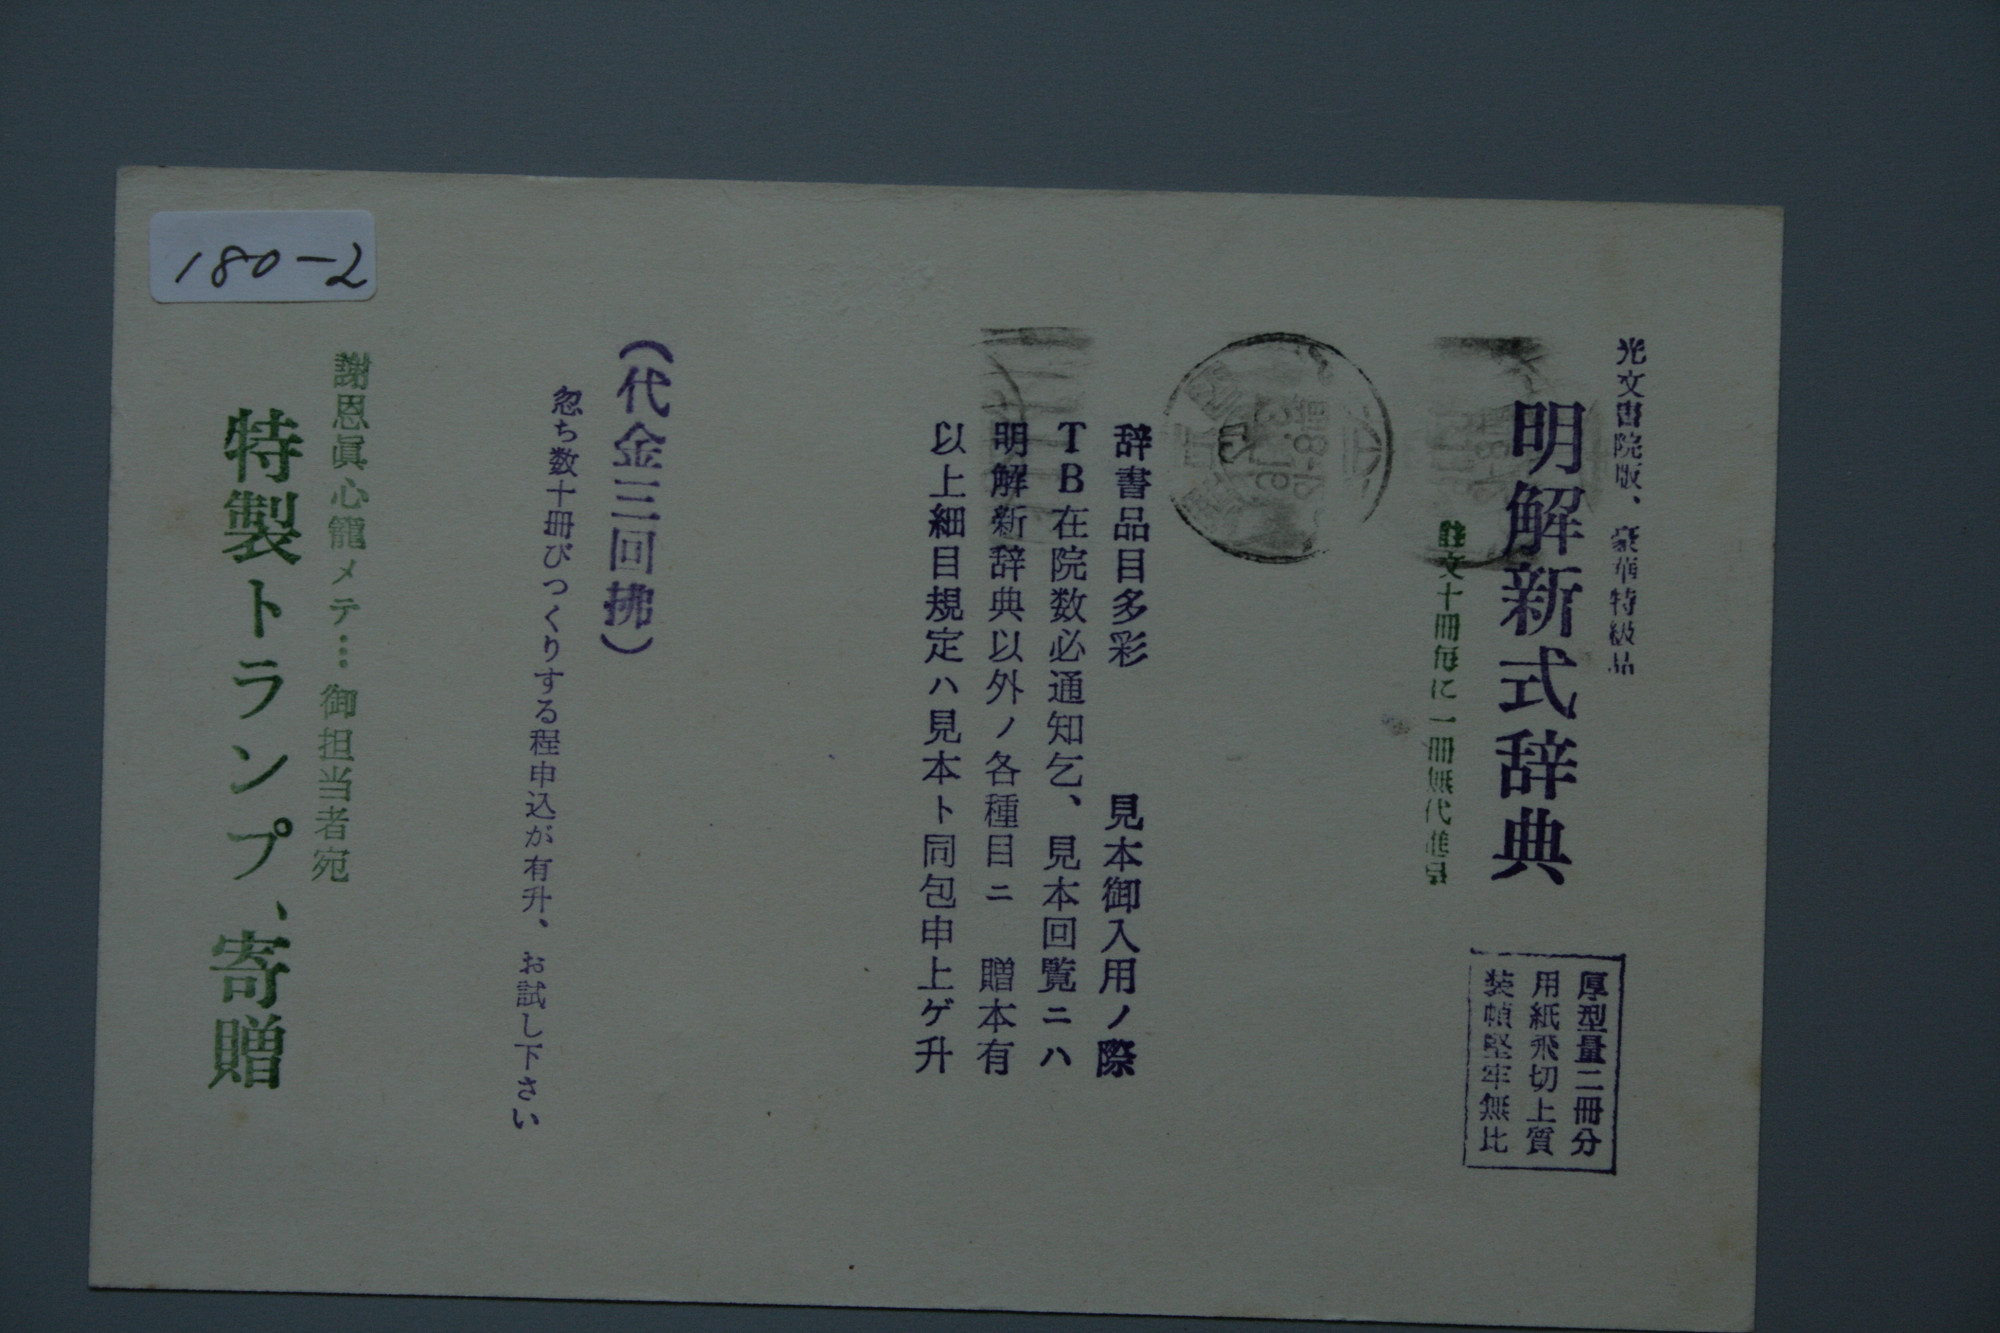 光文書院版、豪華特級品
明解新式辞典
厚型量二冊分
用紙飛切上質
装幀堅牢無比
註文十冊毎に一冊無代進呈
辞書品目多彩　見本御入用ノ際
TB在院数必通知乞、見本回覧ニハ
明解新辞典以外ノ各種目ニ　贈本有
以上細目規定ハ見本ト同包申上ゲ升
（代金三回拂）
忽ち数十冊びつくりする程申込が有升、お試し下さい
謝恩眞心籠メテ…御担当者宛
特製トランプ、寄贈
180-2